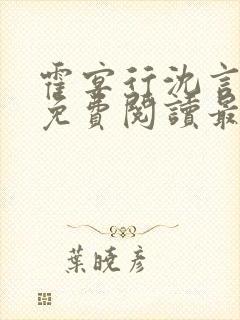 霍宴行沈言
免費閱讀最
葉曉彥